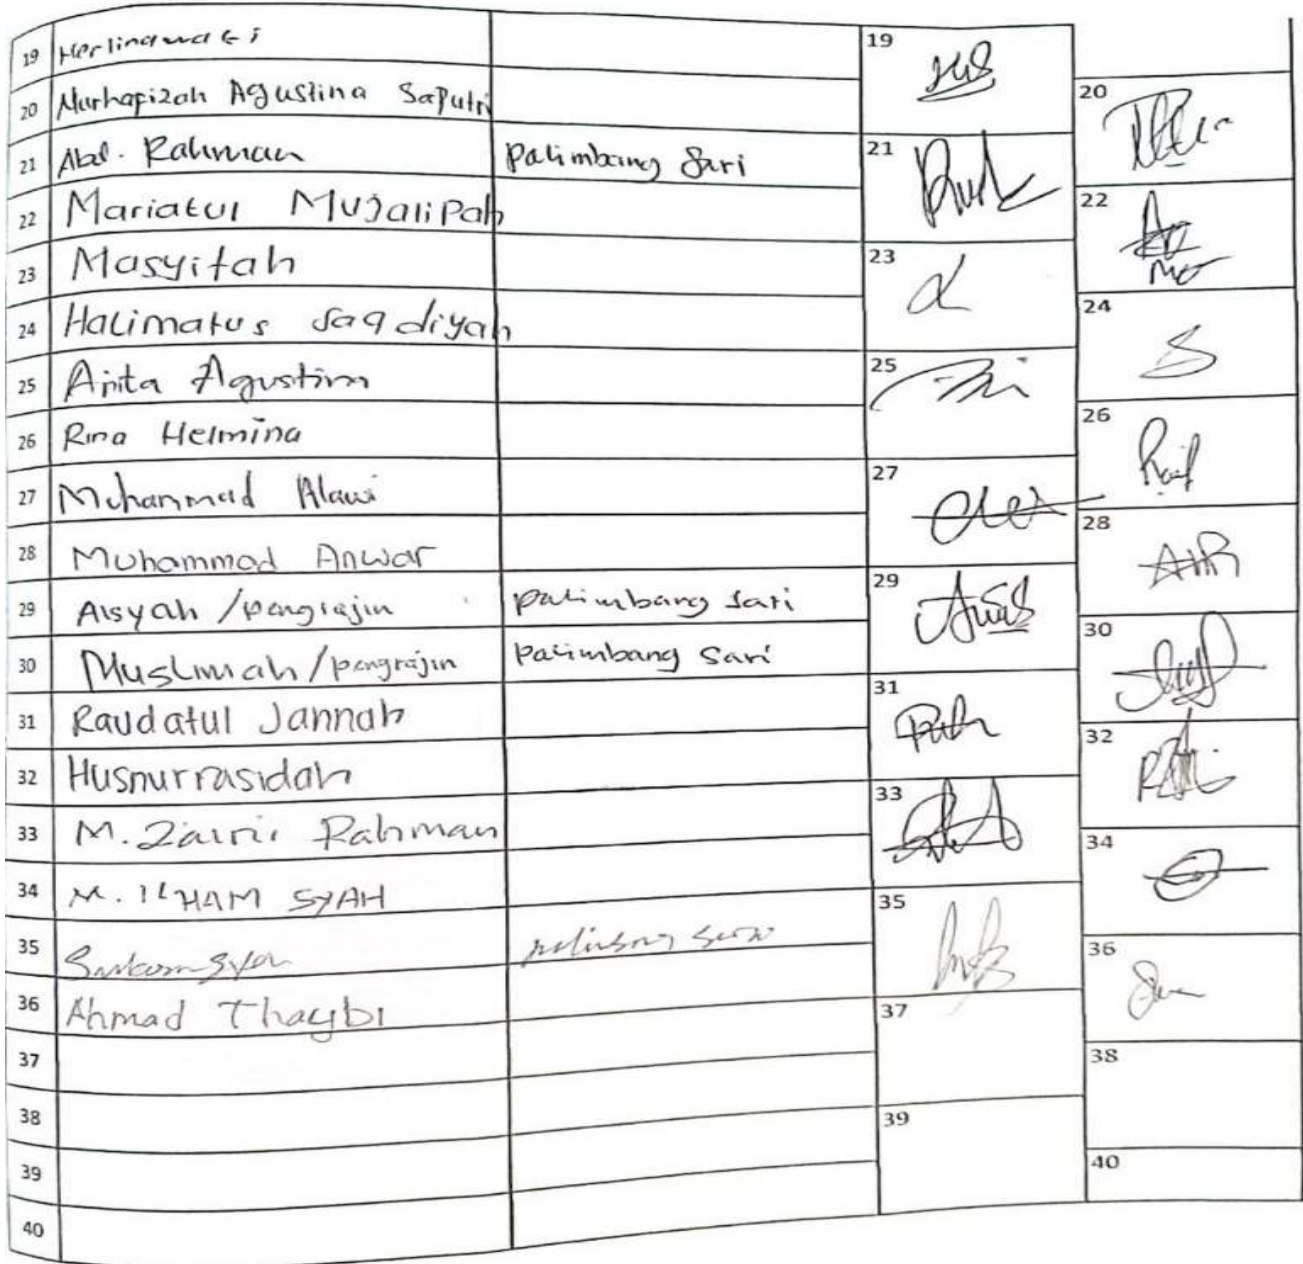 19 Herlinawati 19
20 Nurhafizah Agustina Saputri 20
21 Abd. Rahman Palimbang Sari 21
22 Mariatul Mujalipah 22
23 Masyitah 23
24 Halimatus Saqdiyah 24
25 Anita Agustin 25
26 Rina Helmina 26
27 Muhammad Alawi 27
28 Muhammad Anwar 28
29 Aisyah /pengrajin palimbang sari 29
30 Muslimah/pengrajin palimbang Sari 30
31 Raudatul Jannah 31
32 Husnurrasidah 32
33 M. Rahman 33
34 M. ILHAM SYAH 34
35 35
36 Ahmad Thaybi 36
37 37
38 38
39 39
40 40